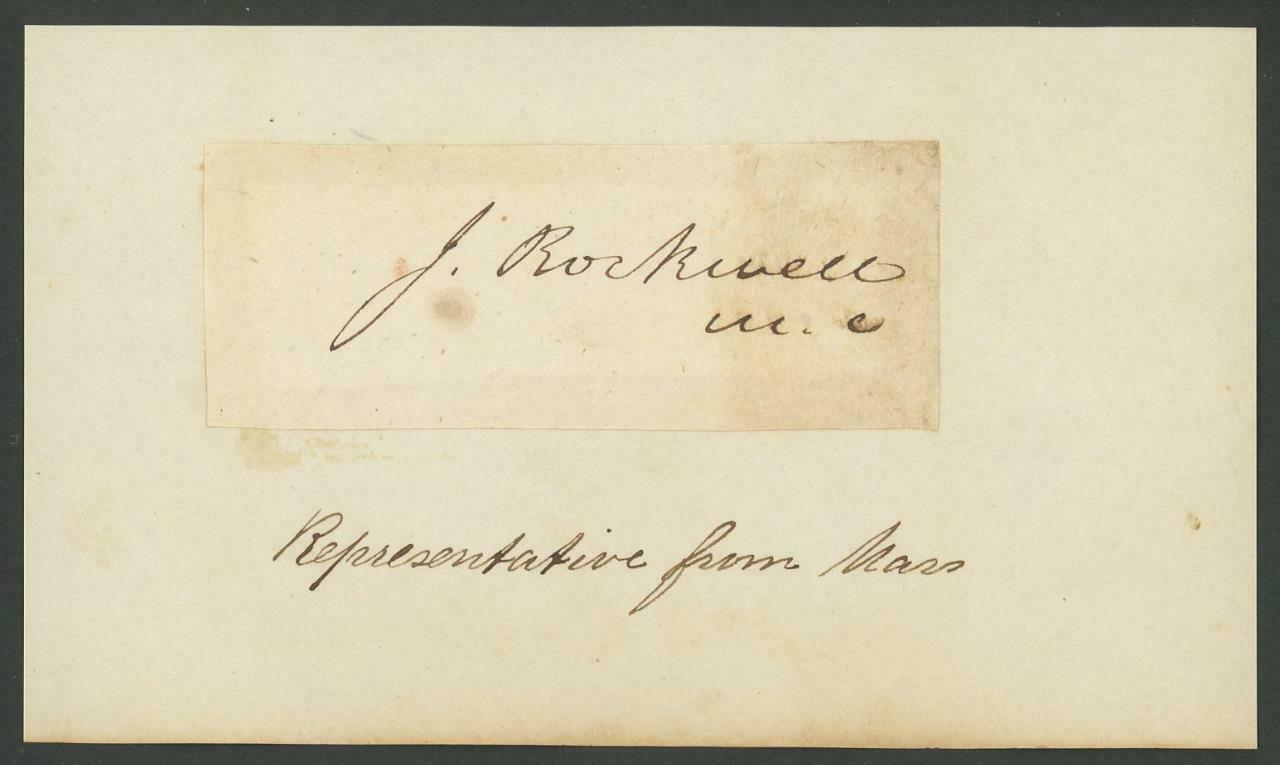 J. Rockwell
M. C
Representative from Mass